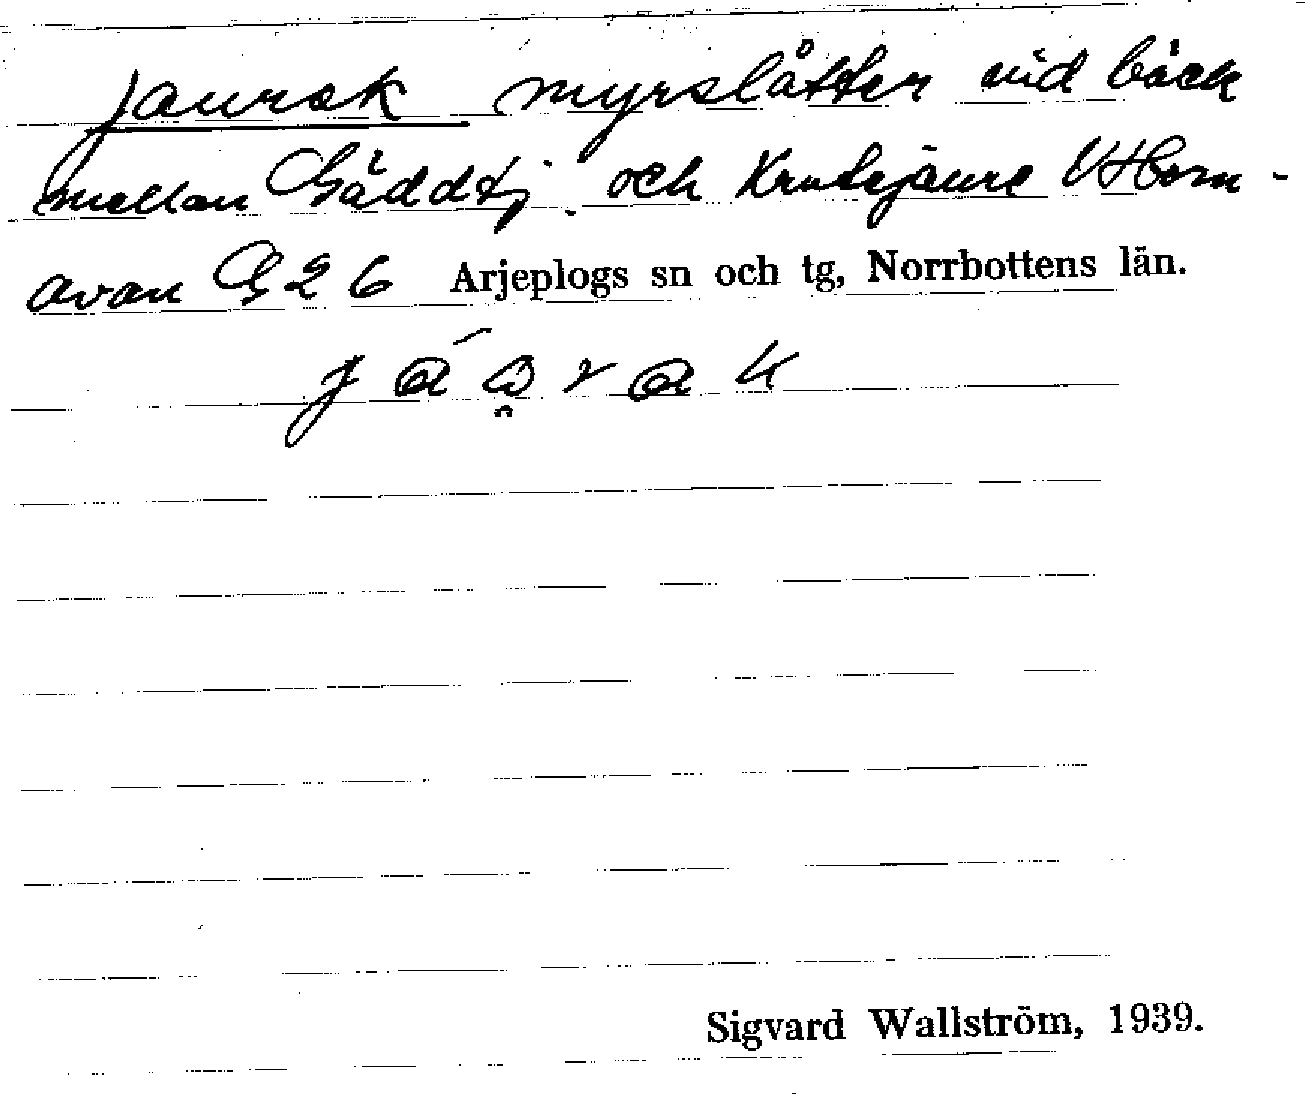 jaurak myrslåtter vid bäck
mellan Gäddtj. och Krutejaure V Horn-
avan G 2 6 Arjeplogs sn och tg, Norrbottens län.
Sigvard Wallström, 1939.